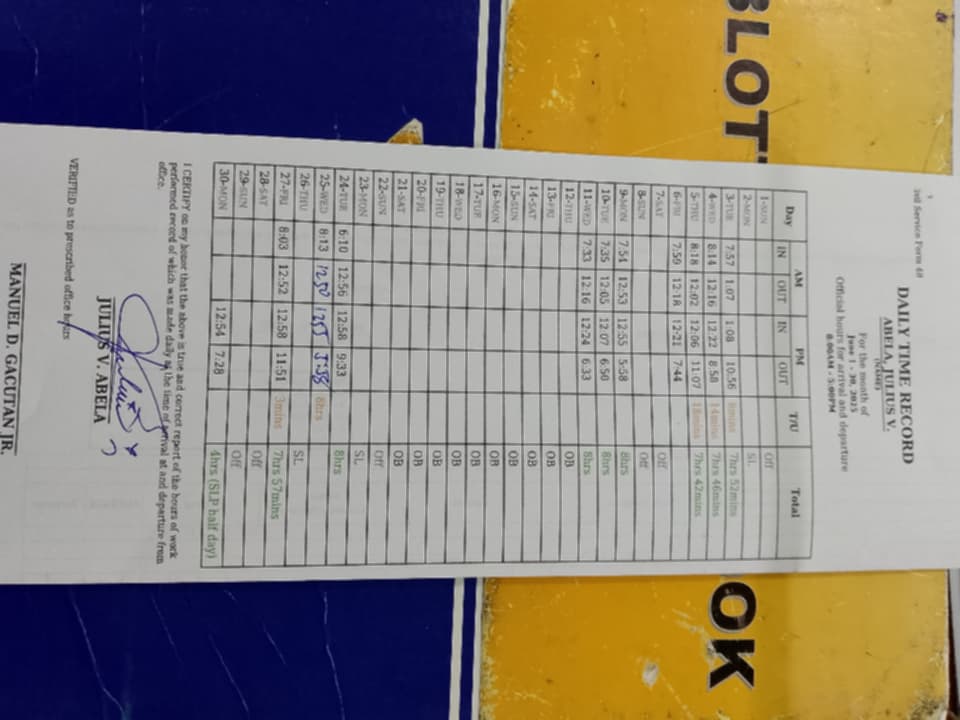 BLOT
OK
DAILY TIME RECORD
ABELA, JULIUS V.
(NAME)
For the month of
June 1 - 30, 2025
Official hours for arrival and departure
8:00AM - 5:00PM
Day AM PM T/U Total
IN OUT IN OUT
1-SUN Off
2-MON SL
3-TUE 7:57 1:07 1:08 10:56 8mins 7hrs 52mins
4-WED 8:14 12:16 12:22 8:58 14mins 7hrs 46mins
5-THU 8:18 12:02 12:06 11:07 18mins 7hrs 42mins
6-FRI 7:59 12:18 12:21 7:44
7-SAT Off
8-SUN Off
9-MON 7:54 12:53 12:55 5:58 8hrs
10-TUE 7:35 12:05 12:07 6:50 8hrs
11-WED 7:33 12:16 12:24 6:33 8hrs
12-THU OB
13-FRI OB
14-SAT OB
15-SUN OB
16-MON OB
17-TUE OB
18-WED OB
19-THU OB
20-FRI OB
21-SAT OB
22-SUN Off
23-MON SL
24-TUE 6:10 12:56 12:58 9:33 8hrs
25-WED 8:13 12:50 12:55 5:58 8hrs
26-THU SL
27-FRI 8:03 12:52 12:58 11:51 3mins 7hrs 57mins
28-SAT Off
29-SUN Off
30-MON 12:54 7:28 4hrs (SLP half day)
I CERTIFY on my honor that the above is true and correct report of the hours of work
performed record of which was made daily at the time of arrival at and departure from
office.
JULIUS V. ABELA
VERIFIED as to prescribed office hours
MANUEL D. GACUTAN JR.